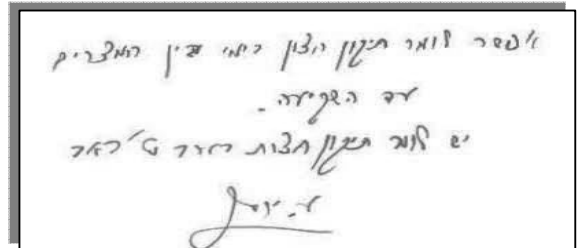 אפשר לומר תיקון חצות בימי בין המצרים
עד השקיעה.
יש לומר תיקון חצות בערב ט' באב
ע. יוסף